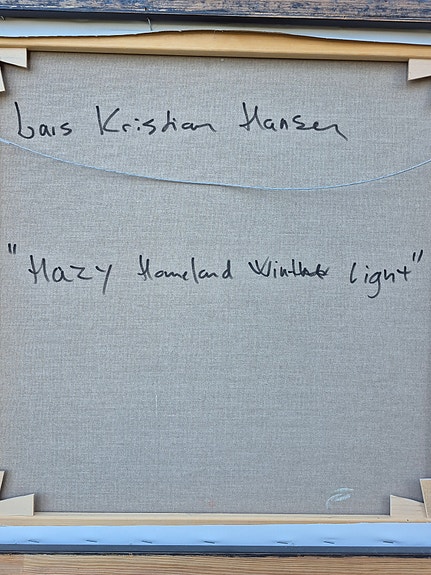 Lars Kristian Hansen
"Hazy Homeland Winter Light"